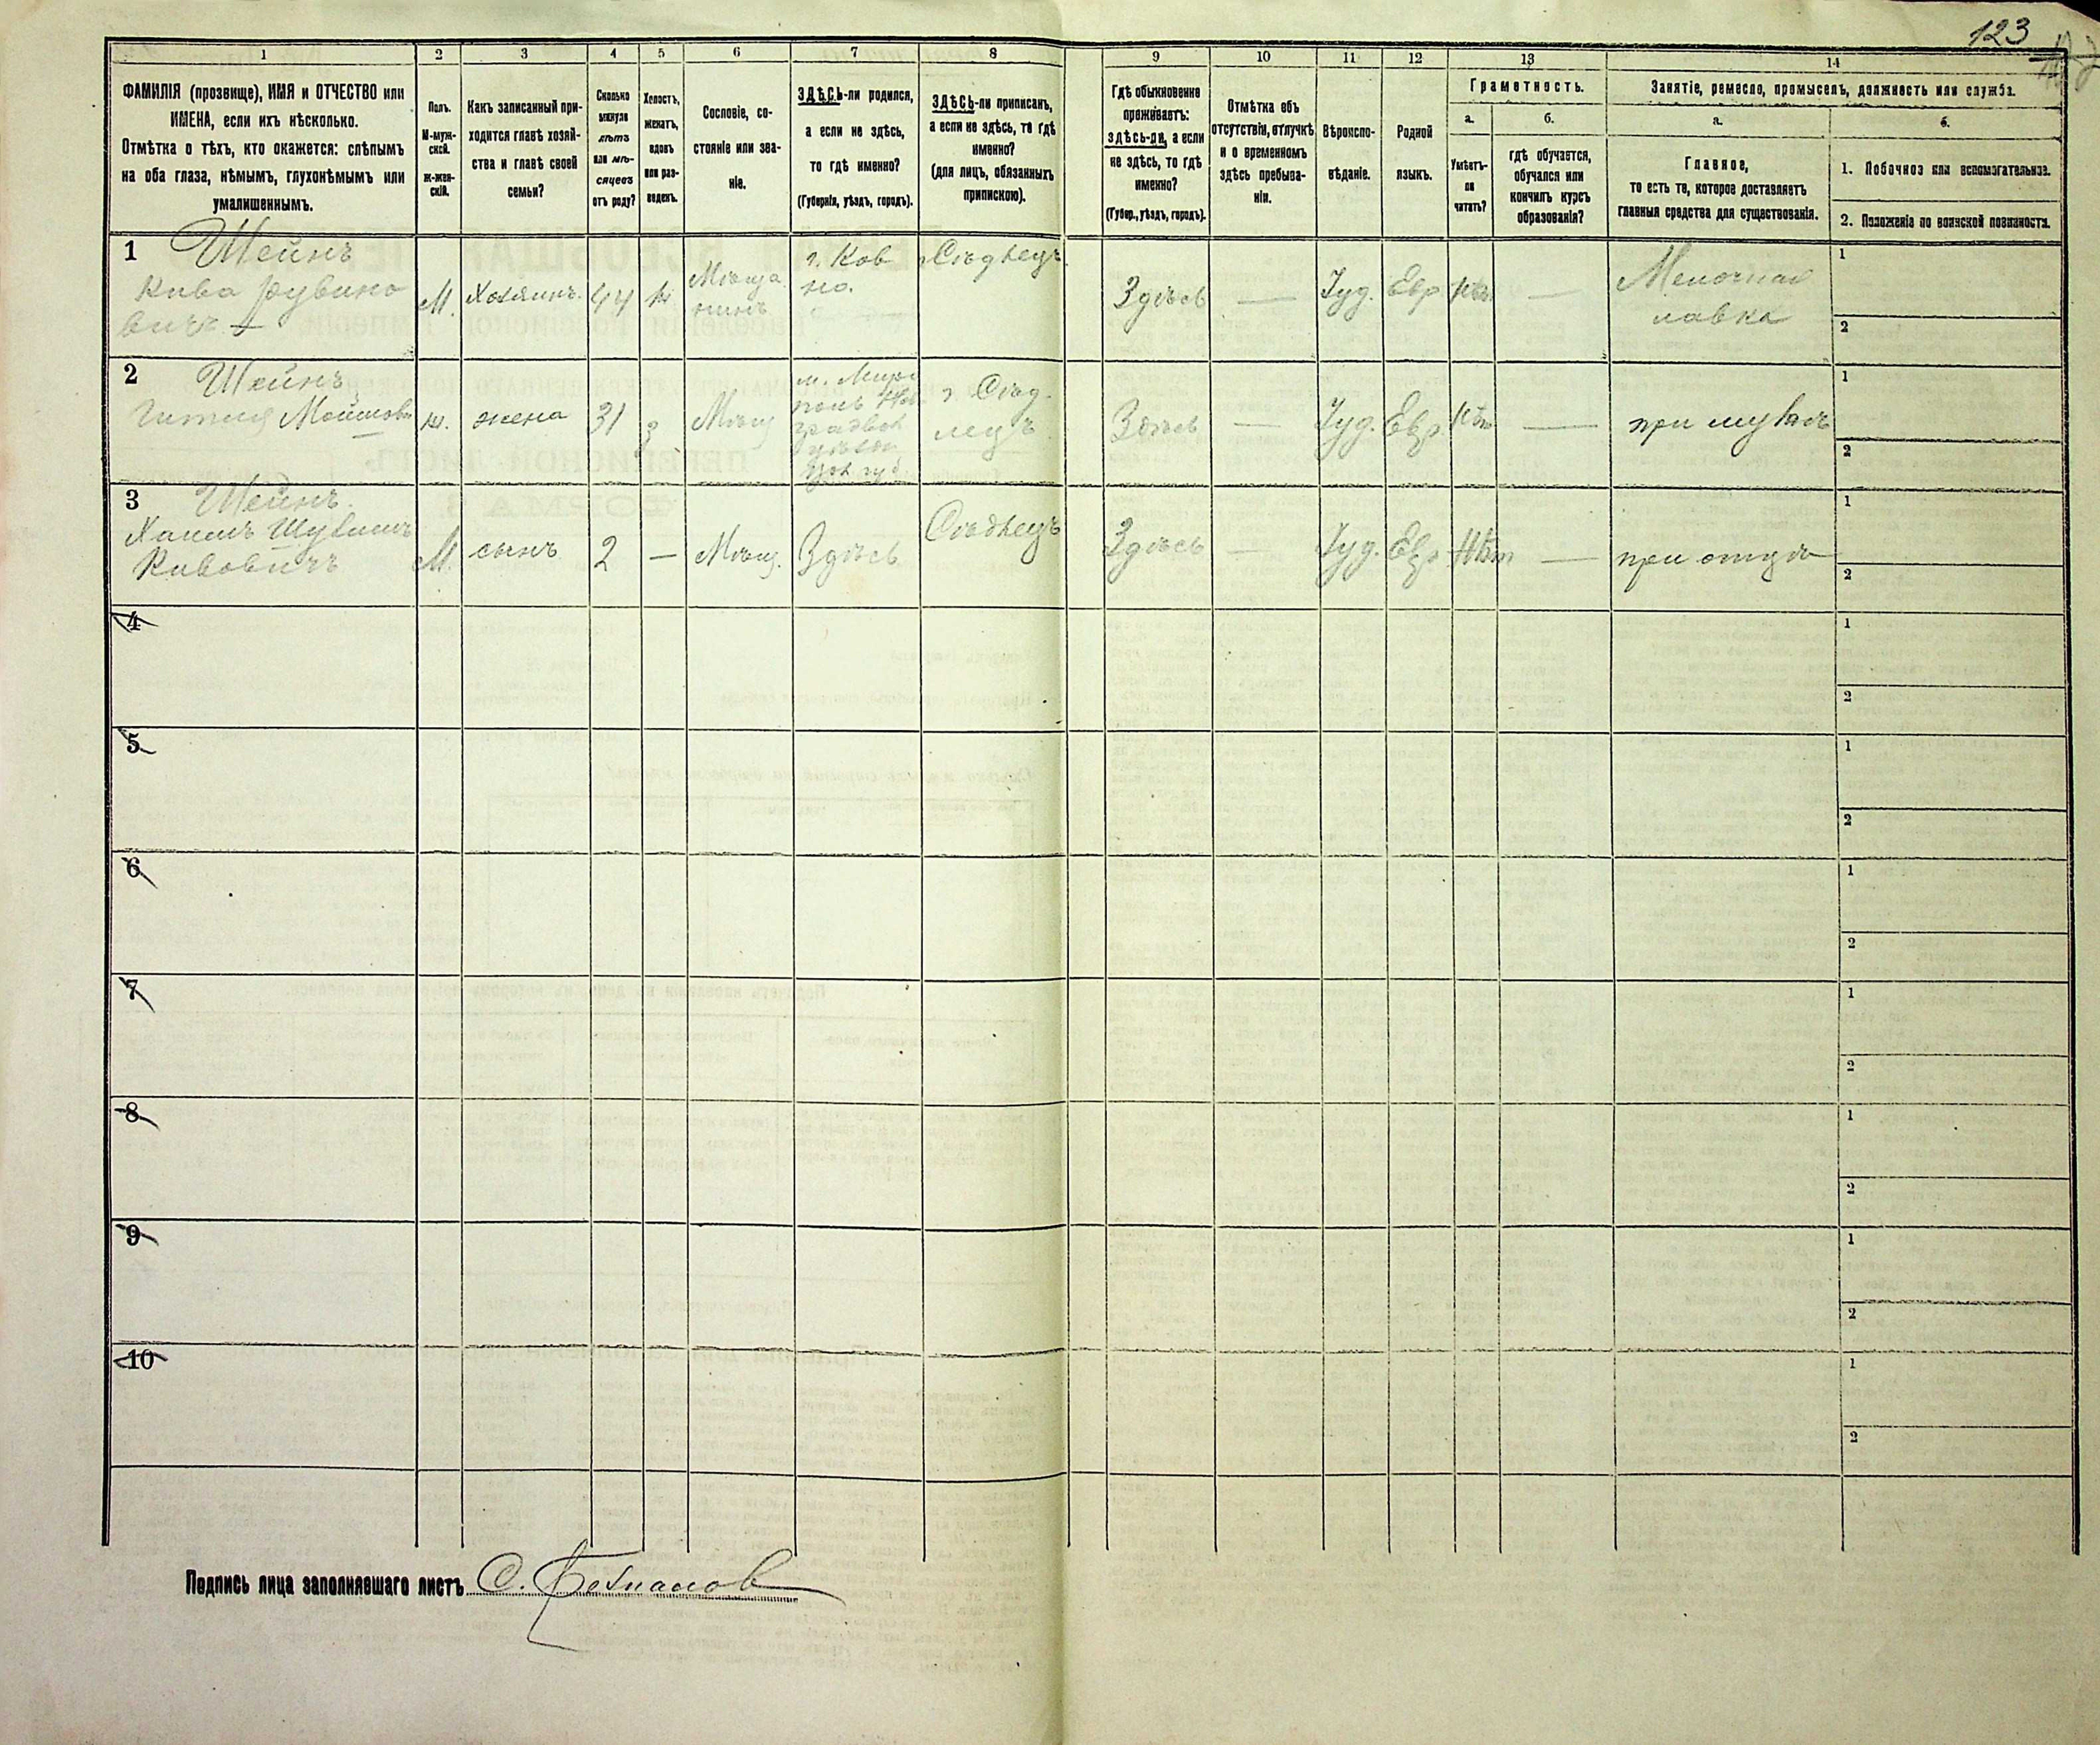 123
1
2
3
4
5
6
7
8
9
10
11
12
13
14
ФАМИЛІЯ (прозвище), ИМЯ и ОТЧЕСТВО или
ИМЕНА, если ихъ нѣсколько.
Отмѣтка о тѣхъ, кто окажется: слѣпымъ
на оба глаза, нѣмымъ, глухонѣмымъ или
умалишеннымъ.
Полъ.
М-муж-
ской.
Ж-жен-
скій.
Какъ записанный при-
ходится главѣ хозяй-
ства и главѣ своей
семьи?
Сколько
минуло
лѣтъ
или мѣ-
сяцевъ
отъ роду?
Холостъ,
женатъ,
вдовъ
или раз-
веденъ.
Сословіе, со-
стояніе или зва-
ніе.
ЗДѢСЬ-ли родился,
а если не здѣсь,
то гдѣ именно?
(Губернія, уѣздъ, городъ).
ЗДѢСЬ-ли приписанъ,
а если не здѣсь, то гдѣ
именно?
(для лицъ, обязанныхъ
припискою).
Гдѣ обыкновенно
проживаетъ:
здѣсь-ли, а если
не здѣсь, то гдѣ
именно?
(Губер., уѣздъ, городъ).
Отмѣтка объ
отсутствіи, отлучкѣ
и о временномъ
здѣсь пребыва-
ніи.
Вѣроиспо-
вѣданіе.
Родной
языкъ.
Грамотность.
а.
Умѣетъ-
ли
читать?
б.
гдѣ обучается,
обучался или
кончилъ курсъ
образованія?
Занятіе, ремесло, промыселъ, должность или служба.
а.
Главное,
то есть то, которое доставляетъ
главныя средства для существованія.
б.
1. Побочное или вспомогательное.
2. Положеніе по воинской повинности.
1
Шейнъ
Кива Рувино
вичъ
М.
Хозяинъ
44
ж
Мѣща
нинъ
г. Ков
но.
Сѣдлецъ
Здѣсь
—
Іуд.
Евр
—
Мелочная
лавка
1
2
2
Шейнъ
Гитля Мошков
ж.
жена
31
з
Мѣщ
г. Сѣд
лецъ
Здѣсь
—
Іуд.
Евр.
Нѣт
—
при мужѣ
1
2
3
Шейнъ
Кивовичъ
М.
сынъ
2
—
Мѣщ.
Здѣсь
Сѣдлецъ
Здѣсь
—
Іуд.
Евр
Нѣт
—
при отцѣ
1
2
4
1
2
5
1
2
6
1
2
7
1
2
8
1
2
9
1
2
10
1
2
Подпись лица заполнявшаго листъ